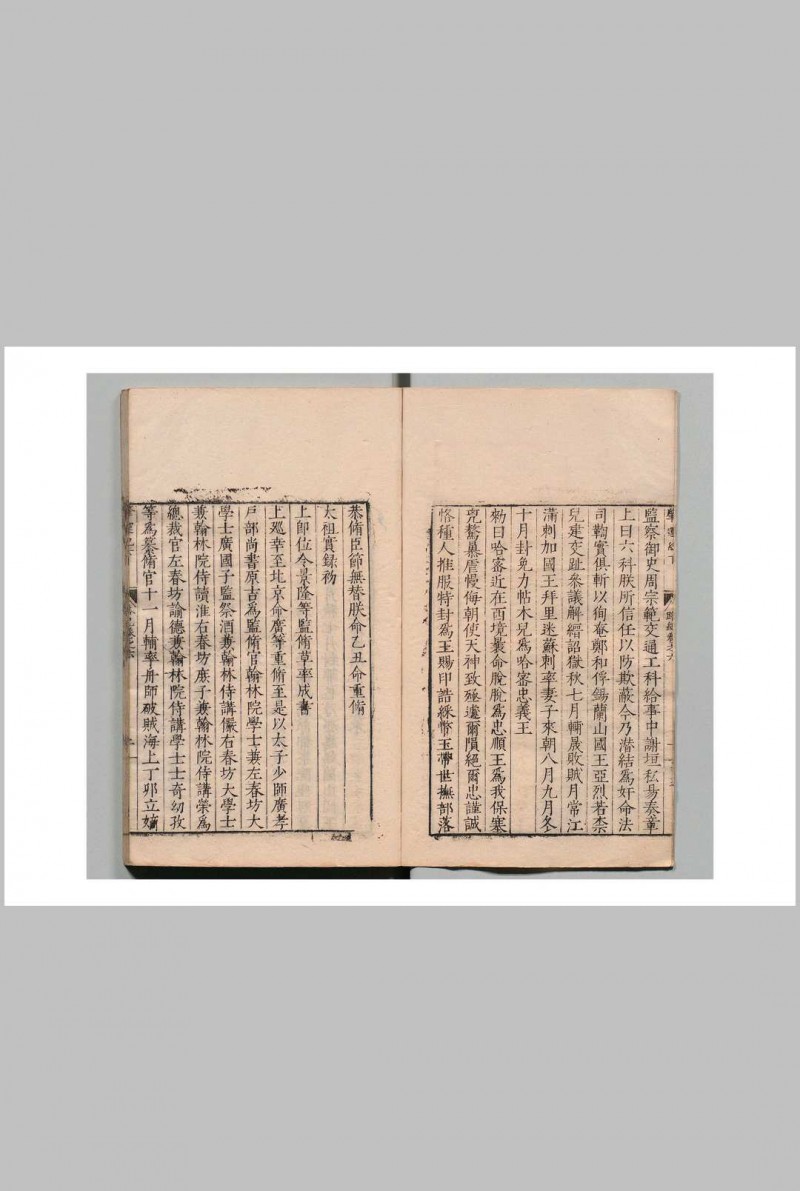 監察御史周宗範交通工科給事中謝垣私易奏章
上曰六科朕所信任以防欺蔽今乃潛結爲奸命法
司鞫實俱斬以徇奄鄭和俘錫蘭山國王亞烈若柰
兒建交趾叅議解縉詔獄秋七月輔晟敗賊月常江
滿剌加國王拜里迷蘇剌率妻子來朝八月九月冬
十月封免力帖木兒爲哈密忠義王
勑曰哈密近在西境曩命脫脫爲忠順王爲我保塞
兇驁暴虐慢侮朝使天神致殛遄爾隕絕爾忠謹誠
恪種人推服特封爲王賜印誥綵幣玉帶世撫部落
恭脩臣節無替朕命乙丑命重脩
太祖實錄初
上即位令景隆等監脩草率成書
上廵幸至北京命廣等重脩至是以太子少師廣孝
戶部尚書原吉爲監脩官翰林院學士兼左春坊大
學士廣國子監祭酒兼翰林侍講儼右春坊大學士
兼翰林院侍讀淮右春坊庶子兼翰林院侍講榮爲
總裁官左春坊諭德兼翰林院侍講學士士奇幼孜
等爲纂脩官十一月輔率舟師破賊海上丁卯立嫡